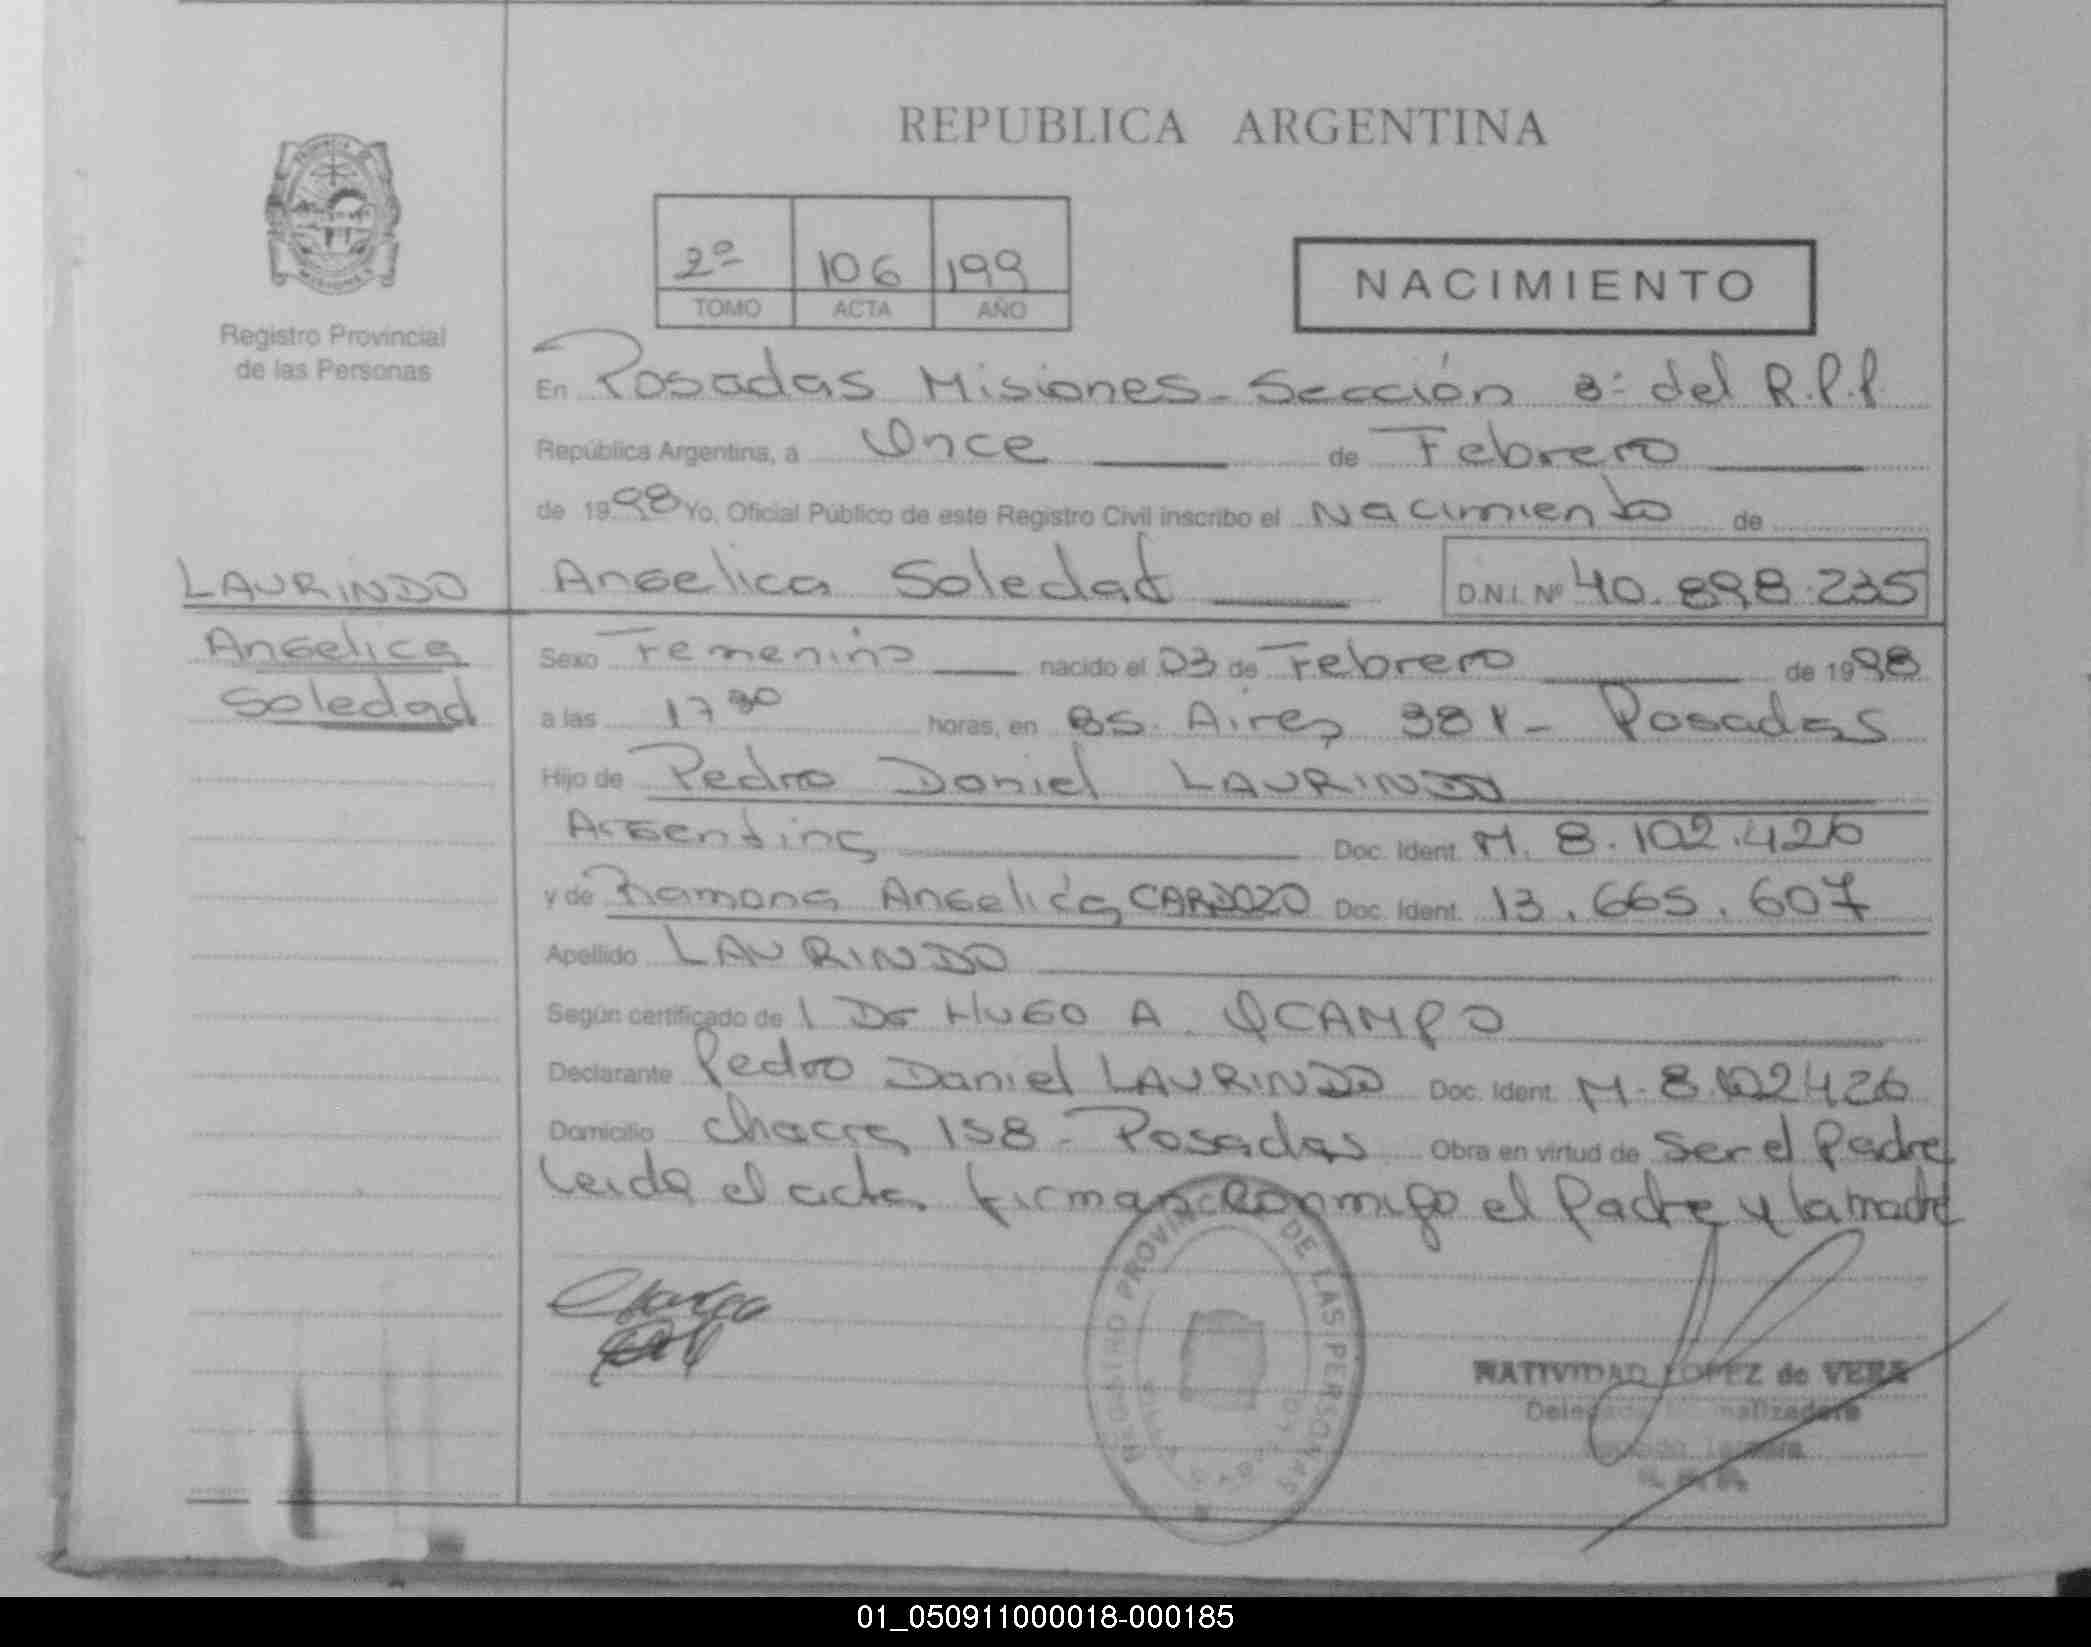 REPUBLICA ARGENTINA
2º 106 199
TOMO ACTA AÑO
NACIMIENTO
Registro Provincial
de las Personas
En Posadas Misiones - Sección 3º del R.P.P
República Argentina, a Once de Febrero
de 1998 Yo, Oficial Público de este Registro Civil inscribo el Nacimiento de
LAURINDO Angelica Soledad D.N.I. Nº 40.898.235
Angelica
Soledad
Sexo Femenino nacido el 03 de Febrero de 1998
a las 17 30 horas, en BS. Aires 381 - Posadas
Hijo de Pedro Daniel LAURINDO
Argentino Doc. Ident. M. 8.102.426
y de Ramona Angelica CARDOZO Doc. Ident. 13.665.607
Apellido LAURINDO
Según certificado de 1 Dr HUGO A. OCAMPO
Declarante Pedro Daniel LAURINDO Doc. Ident. M-8.102426
Domicilio chacra 158 - Posadas Obra en virtud de ser el Padre
Leida el acta firman conmigo el Padre y la madre
REGISTRO PROVINCIAL DE LAS PERSONAS
NATIVIDAD LOPEZ de VERA
01_050911000018-000185